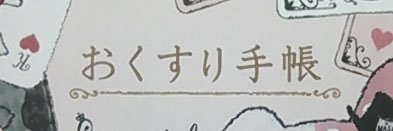 おくすり手帳